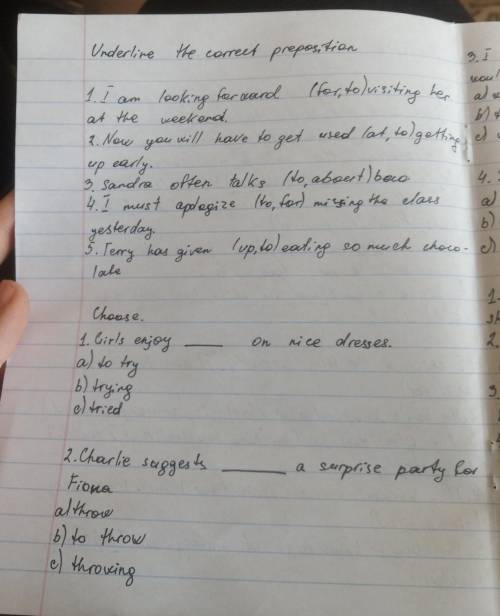 Underline the correct preposition
1. I am looking forward (for, to) visiting her
at the weekend.
2. Now you will have to get used (at, to) getting
up early.
3. Sandra often talks (to, about)
4. I must apologize (to, for) missing the class
yesterday.
5. Terry has given (up, to) eating so much choco-
late
Choose.
1. Girls enjoy ____ on nice dresses.
a) to try
b) trying
c) tried
2. Charlie suggests ____ a surprise party for
Fiona
a) throw
b) to throw
c) throwing
3. I
a)
b)
c)
4.
a)
b)
c)
1.
2.
3